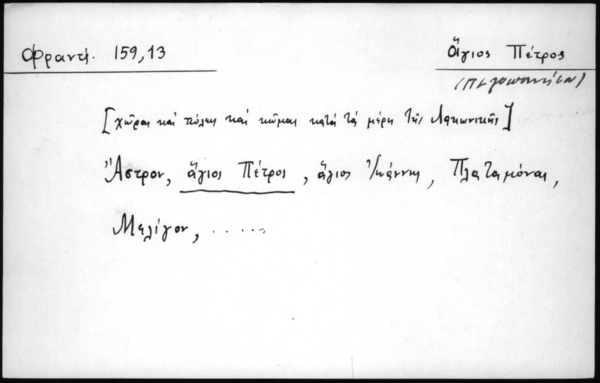 Φραντζ. 159,13 ἅγιος Πέτρος
(Πελοπόννησος)
[χῶραι καὶ πόλεις καὶ κῶμαι κατὰ τὰ μέρη τῆς Λακωνικῆς]
Ἄστρον, ἅγιος Πέτρος, ἅγιος Ἰωάννης, Πλαταμόναι,
Μελίγον, ......